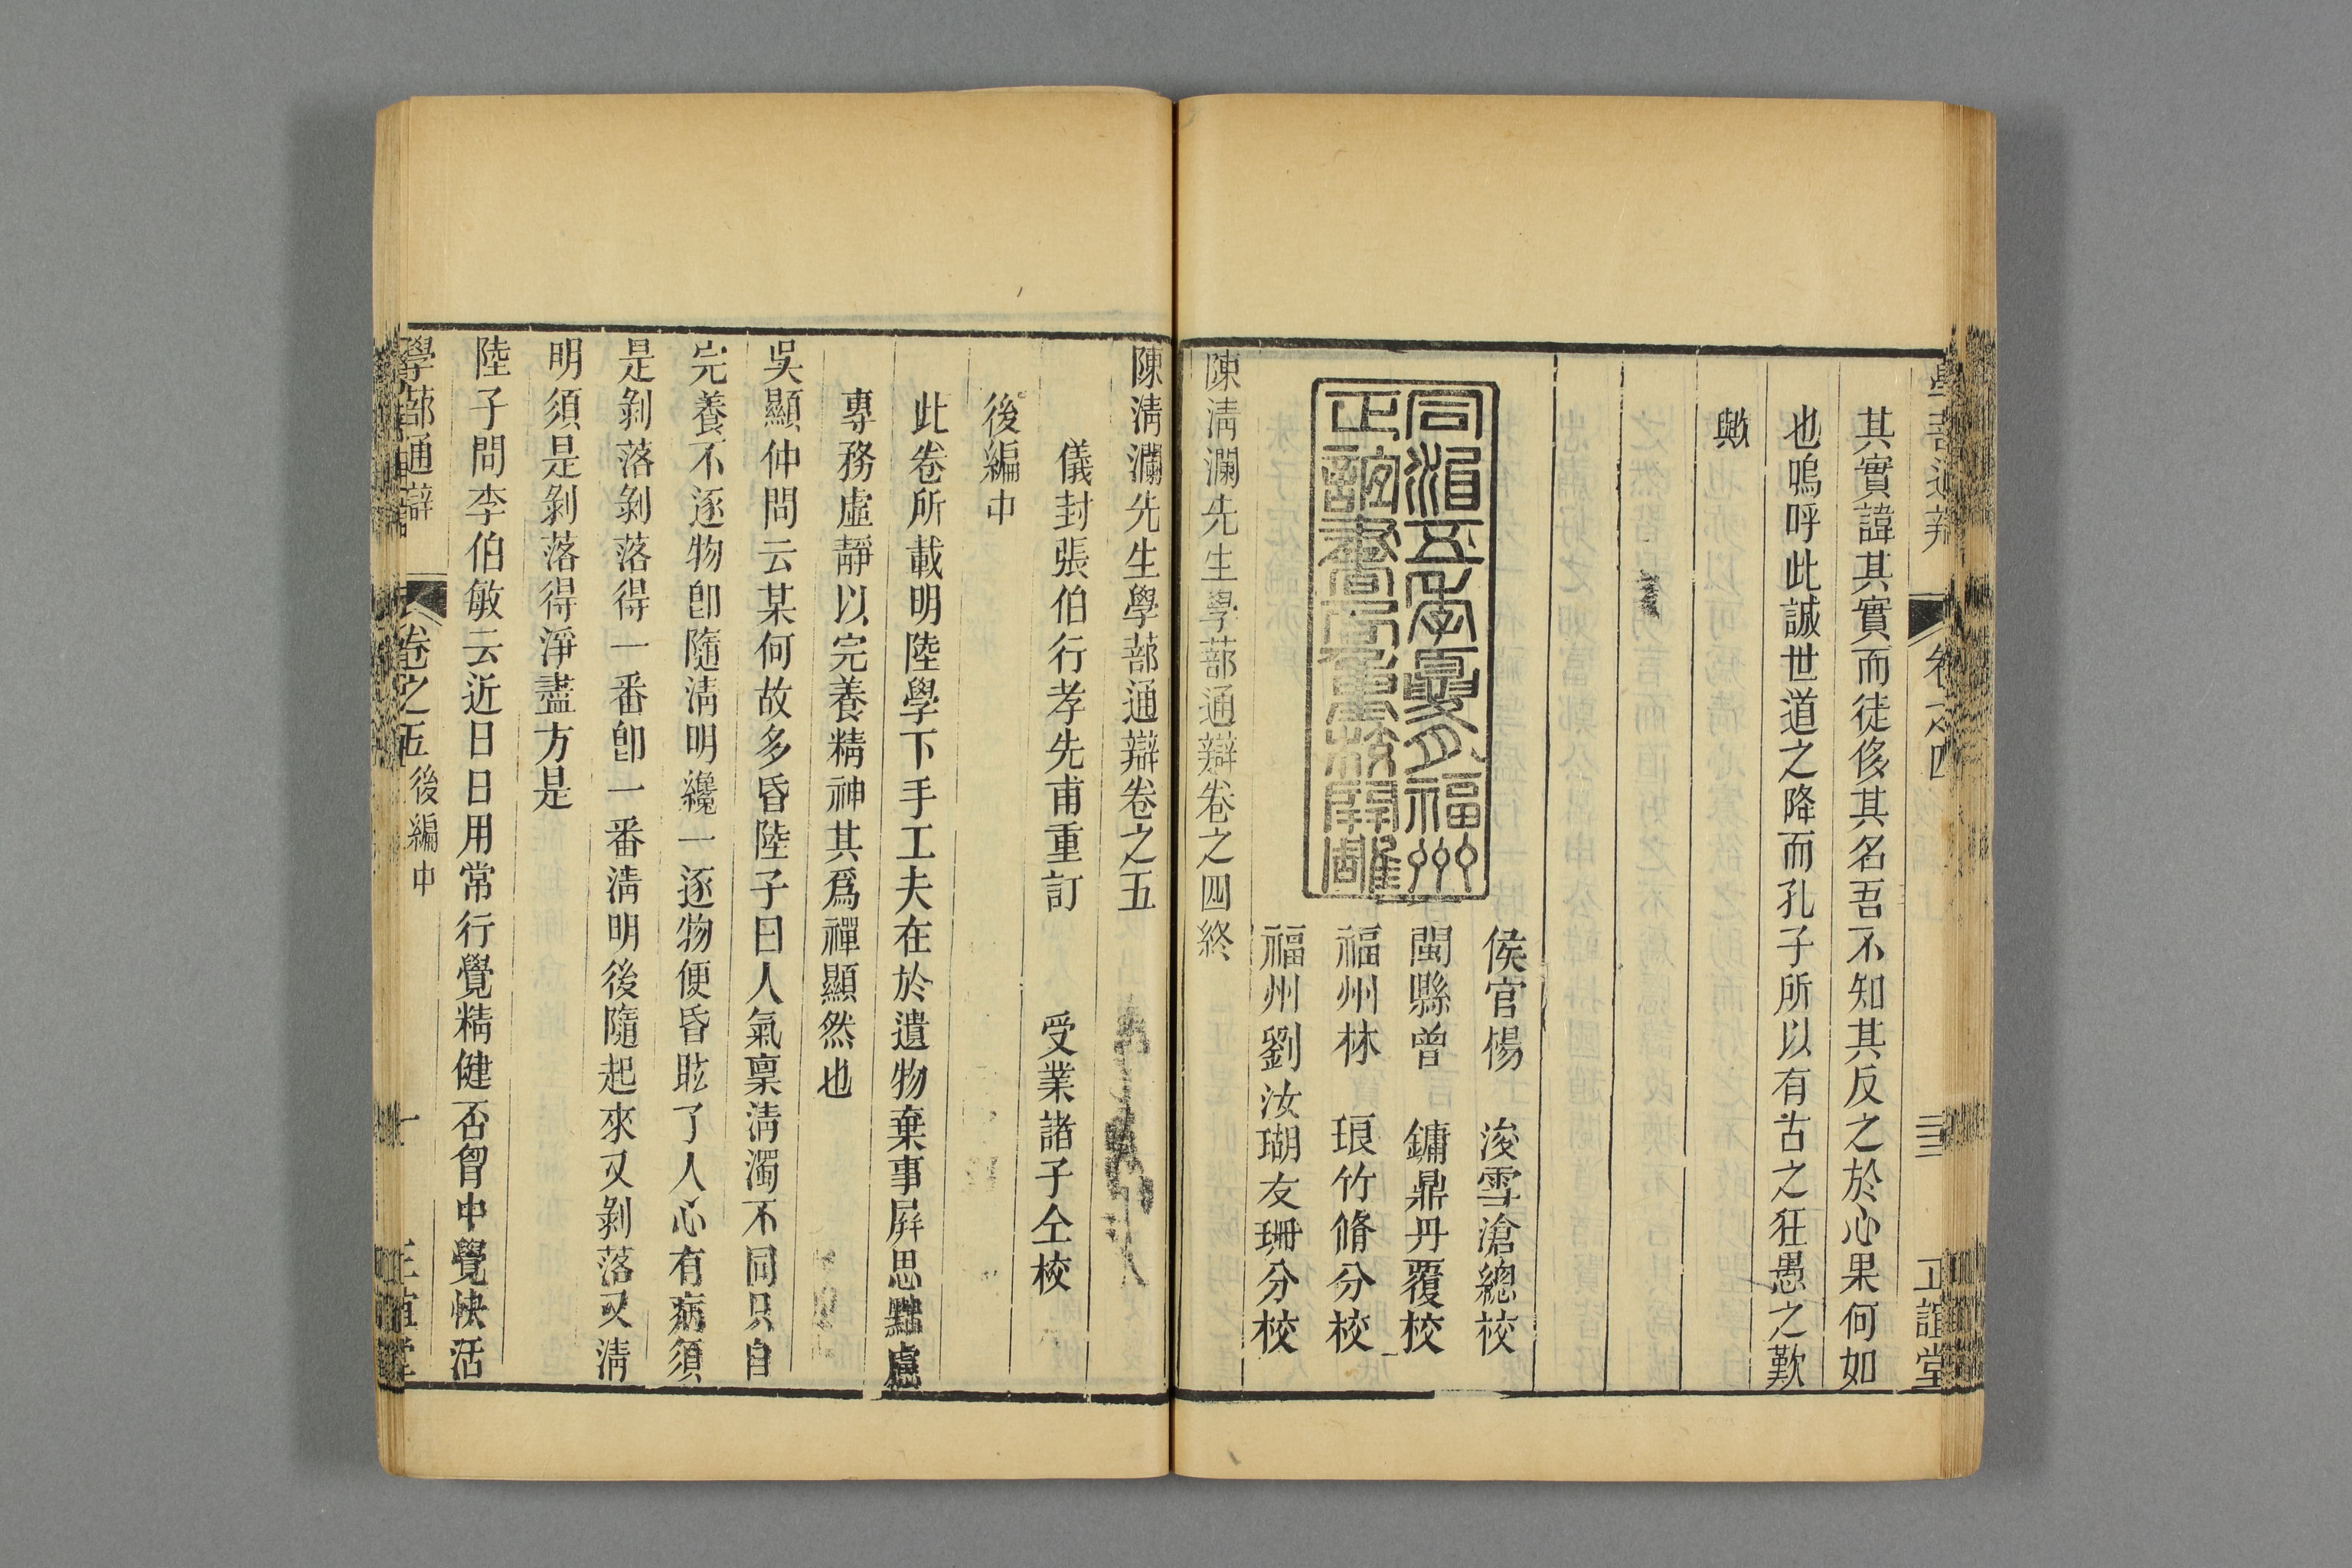 其實諱其實而徒侈其名吾不知其反之於心果何如
也嗚呼此誠世道之降而孔子所以有古之狂愚之歎
歟
侯官楊 浚雪滄總校
閩縣曾 鏞鼎丹覆校
福州林 琅竹脩分校
福州劉汝瑚友珊分校
同治五年夏月福州
正誼書局重校開雕
陳清瀾先生學蔀通辯卷之四終
正誼堂
陳清瀾先生學蔀通辯卷之五
儀封張伯行孝先甫重訂 受業諸子仝校
後編中
此卷所載明陸學下手工夫在於遺物棄事屏思黜慮
專務虛靜以完養精神其爲禪顯然也
吳顯仲問云某何故多昏陸子曰人氣稟清濁不同只自
完養不逐物卽隨清明纔一逐物便昏眩了人心有病須
是剝落剝落得一番卽一番清明後隨起來又剝落又清
明須是剝落得淨盡方是
陸子問李伯敏云近日日用常行覺精健否胷中覺快活
學蔀通辯 卷之五 後編中 一